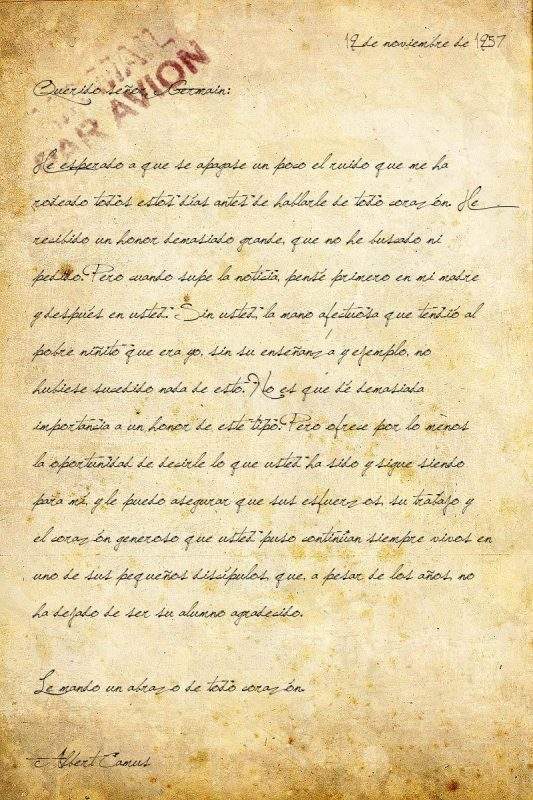 19 de noviembre de 1957
PAR AVION
Querido señor Germain:
He esperado a que se apagase un poco el ruido que me ha
rodeado todos estos días antes de hablarle de todo corazón. He
recibido un honor demasiado grande, que no he buscado ni
pedido. Pero cuando supe la noticia, pensé primero en mi madre
y después en usted. Sin usted, la mano afectuosa que tendió al
pobre niñito que era yo, sin su enseñanza y ejemplo, no
hubiese sucedido nada de esto. No es que dé demasiada
importancia a un honor de este tipo. Pero ofrece por lo menos
la oportunidad de decirle lo que usted ha sido y sigue siendo
para mí, y le puedo asegurar que sus esfuerzos, su trabajo y
el corazón generoso que usted puso continúan siempre vivos en
uno de sus pequeños discípulos, que, a pesar de los años, no
ha dejado de ser su alumno agradecido.
Le mando un abrazo de todo corazón.
Albert Camus